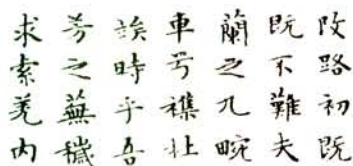 改路初既
既不難夫
蘭之九畹
車兮襍杜
竢時乎吾
芳之蕪穢
求索羌内